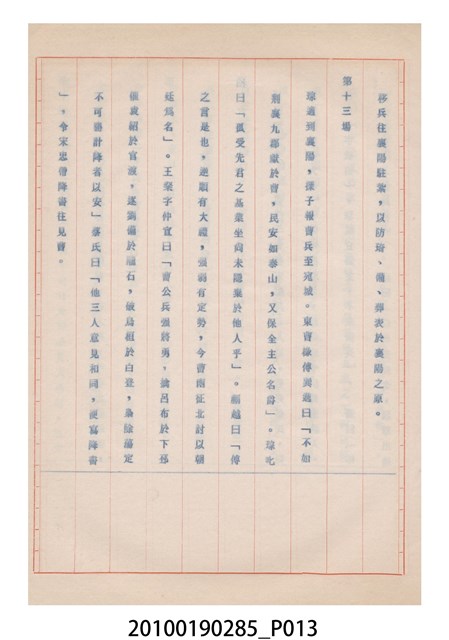 移兵住襄陽駐紮，以防琦、備、葬表於襄陽之原。
第十三場
琮遷到襄陽，探子報曹兵至宛城。東曹掾傅巽進曰「不如
荊襄九郡獻於曹，民安如泰山，又保全主公名爵」。琮叱
曰「孤受先君之基業坐尚未穩棄於他人乎」。蒯越曰「傅
之言是也，逆順有大體，強弱有定勢，今曹南征北討以朝
廷爲名」。王粲字仲宣曰「曹公兵強將勇，擒呂布於下邳
催袁紹於官渡，逐劉備於隴石，破烏桓於白登，梟除蕩定
不可勝計降者以安」蔡氏曰「他三人意見相同，便寫降書
」，令宋忠齎降書往見曹。
20100190285_P013